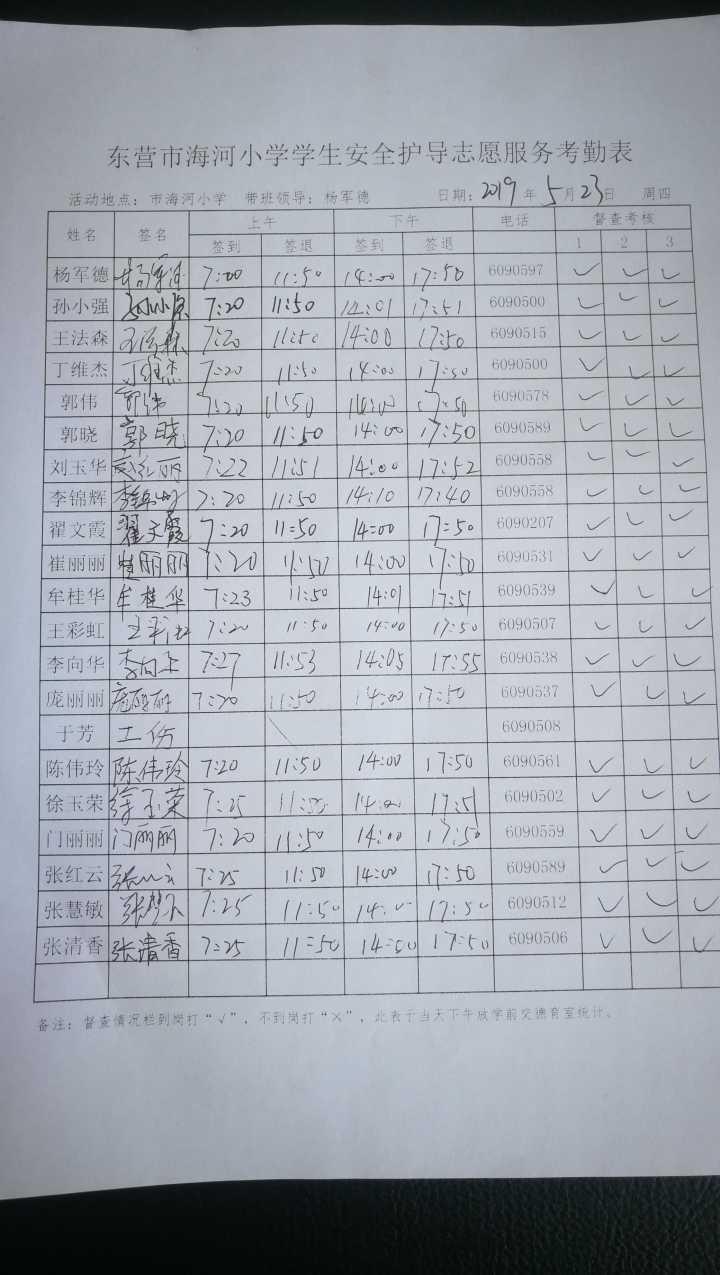 东营市海河小学学生安全护导志愿服务考勤表
活动地点：市海河小学 带班领导：杨军德 日期：2019年5月23日 周四
姓名 签名 上午 下午 电话 督查考核
签到 签退 签到 签退 1 2 3
杨军德 杨军德 7:00 11:50 14:00 17:50 6090597 ✓ ✓ ✓
孙小强 7:20 11:50 14:01 17:51 6090500 ✓ ✓ ✓
王法森 王法森 7:20 11:50 14:00 17:50 6090515 ✓ ✓ ✓
丁维杰 丁维杰 7:20 11:50 14:00 17:50 6090500 ✓ ✓ ✓
郭伟 郭伟 7:20 11:50 14:00 17:50 6090578 ✓ ✓ ✓
郭晓 郭晓 7:20 11:50 14:00 17:50 6090589 ✓ ✓ ✓
刘玉华 7:22 11:51 14:00 17:52 6090558 ✓ ✓ ✓
李锦辉 7:20 11:50 14:10 17:40 6090558 ✓ ✓ ✓
翟文霞 翟文霞 7:20 11:50 14:00 17:50 6090207 ✓ ✓ ✓
崔丽丽 崔丽丽 7:20 11:50 14:00 17:50 6090531 ✓ ✓ ✓
牟桂华 牟桂华 7:23 11:50 14:01 17:51 6090539 ✓ ✓ ✓
王彩虹 王彩虹 7:20 11:50 14:00 17:50 6090507 ✓ ✓ ✓
李向华 李向华 7:27 11:53 14:05 17:55 6090538 ✓ ✓ ✓
庞丽丽 庞丽丽 7:20 11:50 14:00 17:50 6090537 ✓ ✓ ✓
于芳 工伤 6090508
陈伟玲 陈伟玲 7:20 11:50 14:00 17:50 6090561 ✓ ✓ ✓
徐玉荣 徐玉荣 7:25 11:50 14:00 17:51 6090502 ✓ ✓ ✓
门丽丽 门丽丽 7:20 11:50 14:00 17:50 6090559 ✓ ✓ ✓
张红云 张红云 7:25 11:50 14:00 17:50 6090589 ✓ ✓ ✓
张慧敏 7:25 11:50 14:00 17:50 6090512 ✓ ✓ ✓
张清香 张清香 7:25 11:50 14:00 17:50 6090506 ✓ ✓ ✓
备注：督查情况栏到岗打“√”，不到岗打“×”，此表于当天下午放学前交德育室统计。